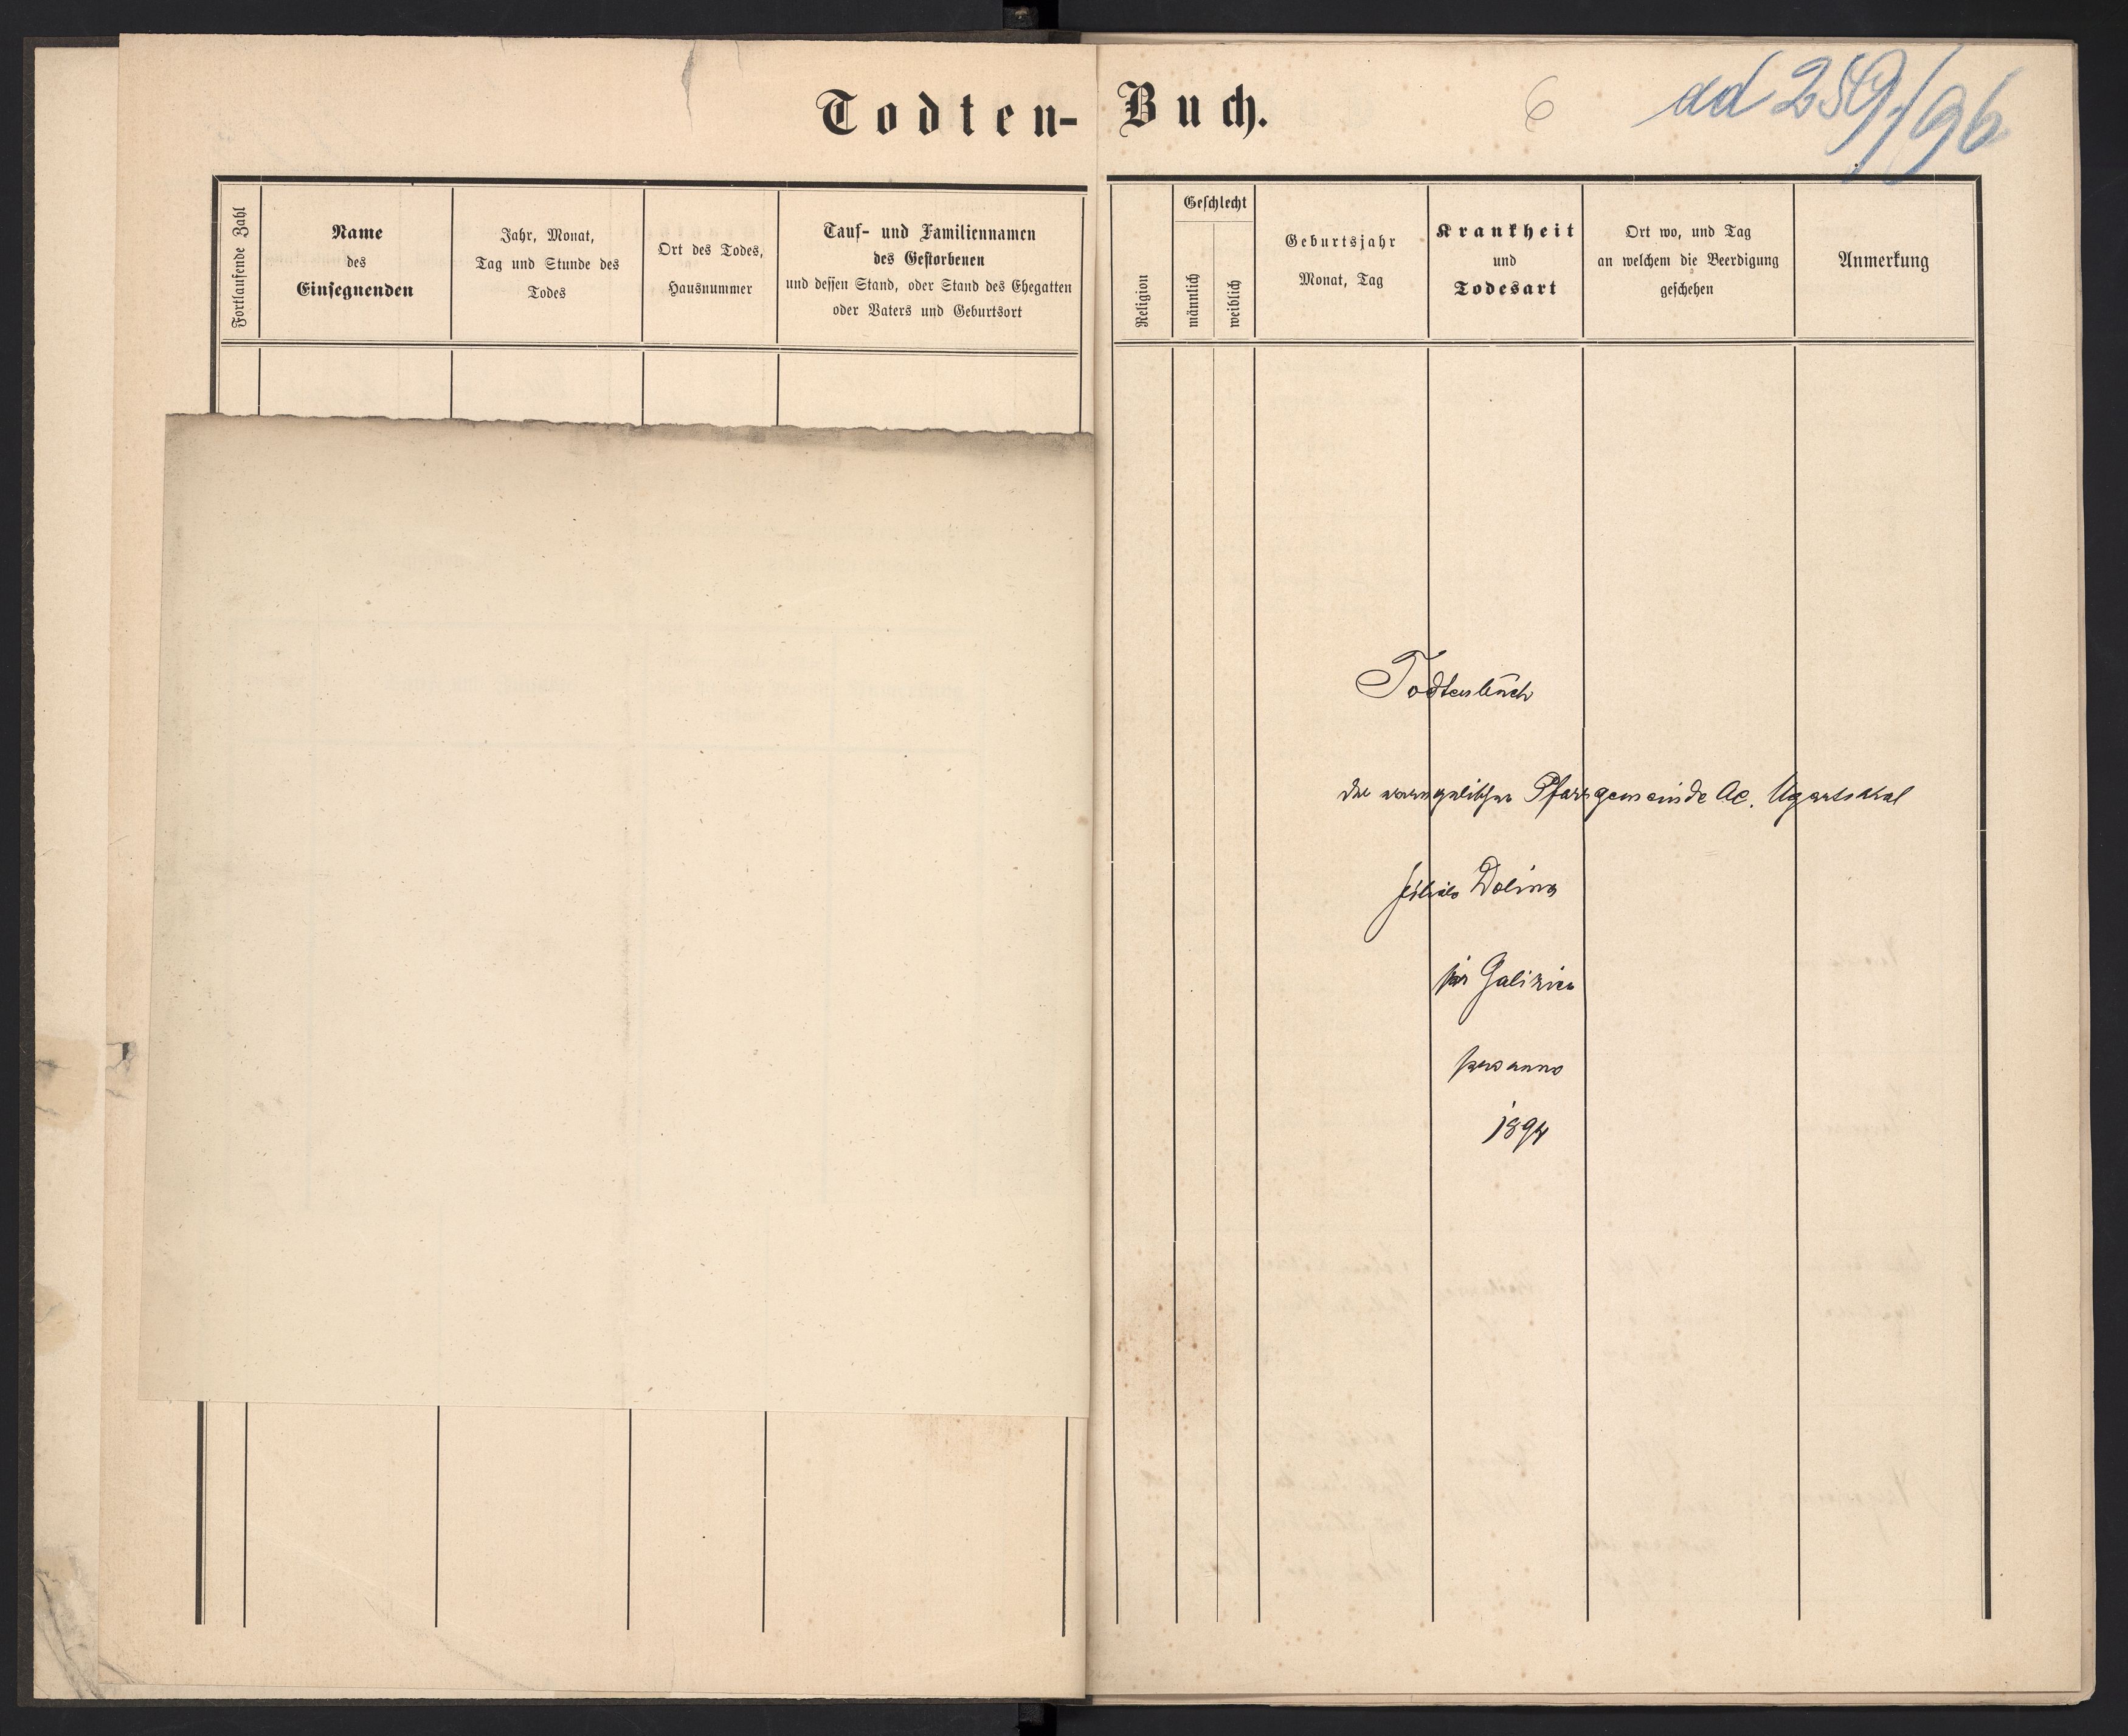 Todten-Buch.
6
ad 259/96
Fortlaufende Zahl
Name
des
Einsegnenden
Jahr, Monat,
Tag und Stunde des
Todes
Ort des Todes,
Hausnummer
Tauf- und Familiennamen
des Gestorbenen
und dessen Stand, oder Stand des Ehegatten
oder Vaters und Geburtsort
Religion
Geschlecht
männlich
weiblich
Geburtsjahr
Monat, Tag
Krankheit
und
Todesart
Ort wo, und Tag
an welchem die Beerdigung
geschehen
Anmerkung
Todtenbuch
der evangelischen Pfarrgemeinde AC. Ugartsthal
filiale Dolina
für Galizien
pro anno
1894